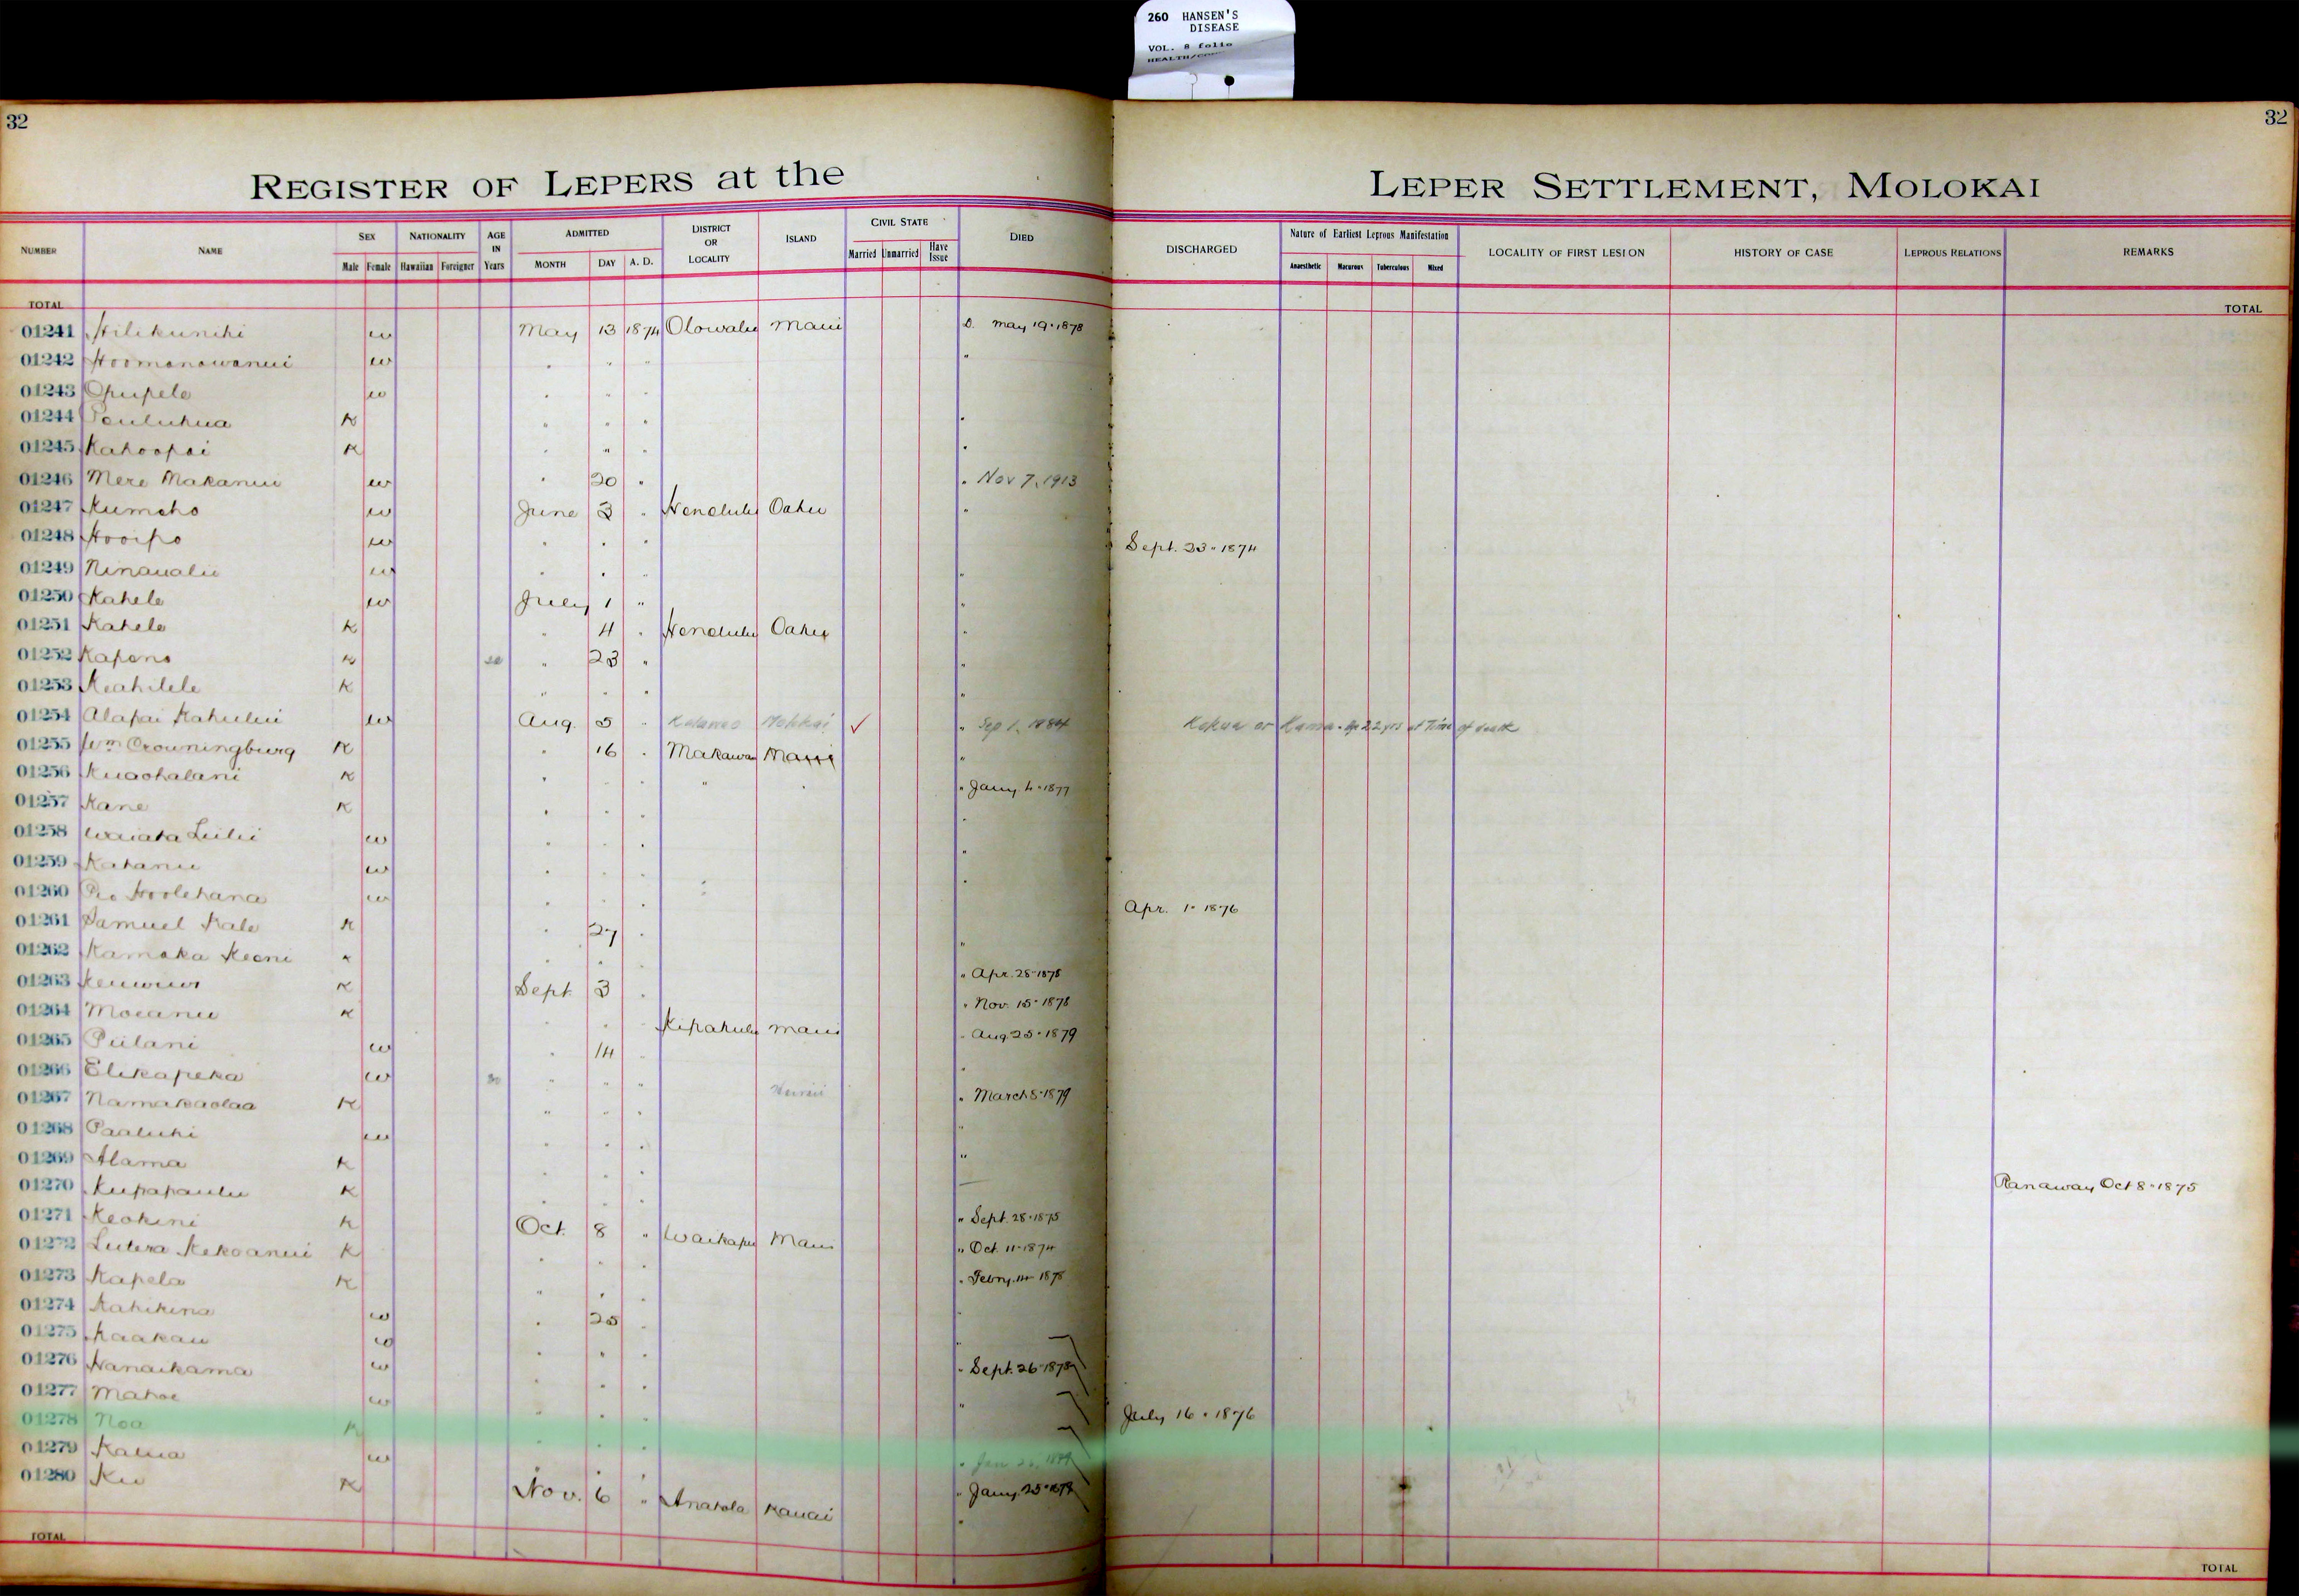 260 HANSEN'S
DISEASE
VOL. 8 folio
32
32
REGISTER OF LEPERS at the LEPER SETTLEMENT, MOLOKAI
NUMBER NAME SEX Male Female NATIONALITY Hawaiian Foreigner AGE IN Years ADMITTED MONTH DAY A. D. DISTRICT OR LOCALITY ISLAND CIVIL STATE Married Unmarried Have Issue DIED DISCHARGED Nature of Earliest Leprous Manifestation Anaesthetic Macurous Tuberculous Mixed LOCALITY OF FIRST LESION HISTORY OF CASE LEPROUS RELATIONS REMARKS
TOTAL TOTAL
01241 Hilikunihi w May 13 1874 Olowalu Maui D. May 19 · 1878
01242 Hoomanawanui w " " " "
01243 Opupele w " " "
01244 Pauluhua K " " " "
01245 Kahoopai K " " " "
01246 Mere Makanui w " 20 " " Nov 7, 1913
01247 Kumeho w June 3 " Honolulu Oahu "
01248 Hooipo w " " " Sept. 23 · 1874
01249 Ninaualu w " " " "
01250 Kahele w July 1 " "
01251 Kahele K " 4 " Honolulu Oahu "
01252 Kapono K " 23 " "
01253 Keahilele K " " " "
01254 Alapai Kahului w Aug. 5 " Kalawao Molokai ✓ " Sep 1, 1884 Kokua or Kama. Age 22 yrs at Time of death
01255 Wm Crowningburg K " 16 " Makawao Maui "
01256 Kuaohalani K " " " " " " Jany. 4 · 1877
01257 Kane K " " " "
01258 Waiata Luilii w " " " "
01259 Kahanu w " " " "
01260 Pio Hoolehana w " " " Apr. 1 · 1876
01261 Samuel Kale K " 27 " "
01262 Kamaka Keoni K " " " " Apr. 28 · 1878
01263 Keuwewi K Sept. 3 " " Nov. 15 · 1878
01264 Moeanu K " " " Kipahulu Maui " Aug 25 · 1879
01265 Piilani w " 14 " "
01266 Elikapeka w 30 " " " Hawaii " March 8 · 1879
01267 Namakaolaa K " " " "
01268 Paaluhi w " " " "
01269 Alama K " " "
01270 Kupapaulu K " " " Ranaway Oct 8 · 1875
01271 Keokini K Oct. 8 " Waikapu Maui " Sept. 28 · 1875
01272 Lutera Kekoanui K " " " " Oct. 11 · 1874
01273 Kapela K " " " " Febry. 14 · 1878
01274 Kahikina w " 25 " "
01275 Kaakau w " " " "
01276 Nanaikama w " " " " Sept. 26 · 1878
01277 Mahoe w " " " "
01278 Noa K " " " July 16 · 1876
01279 Kalua w " Jan 25, 1879
01280 Ku K Nov. 6 " Anahola Kauai " Jany. 25 · 1879
TOTAL TOTAL